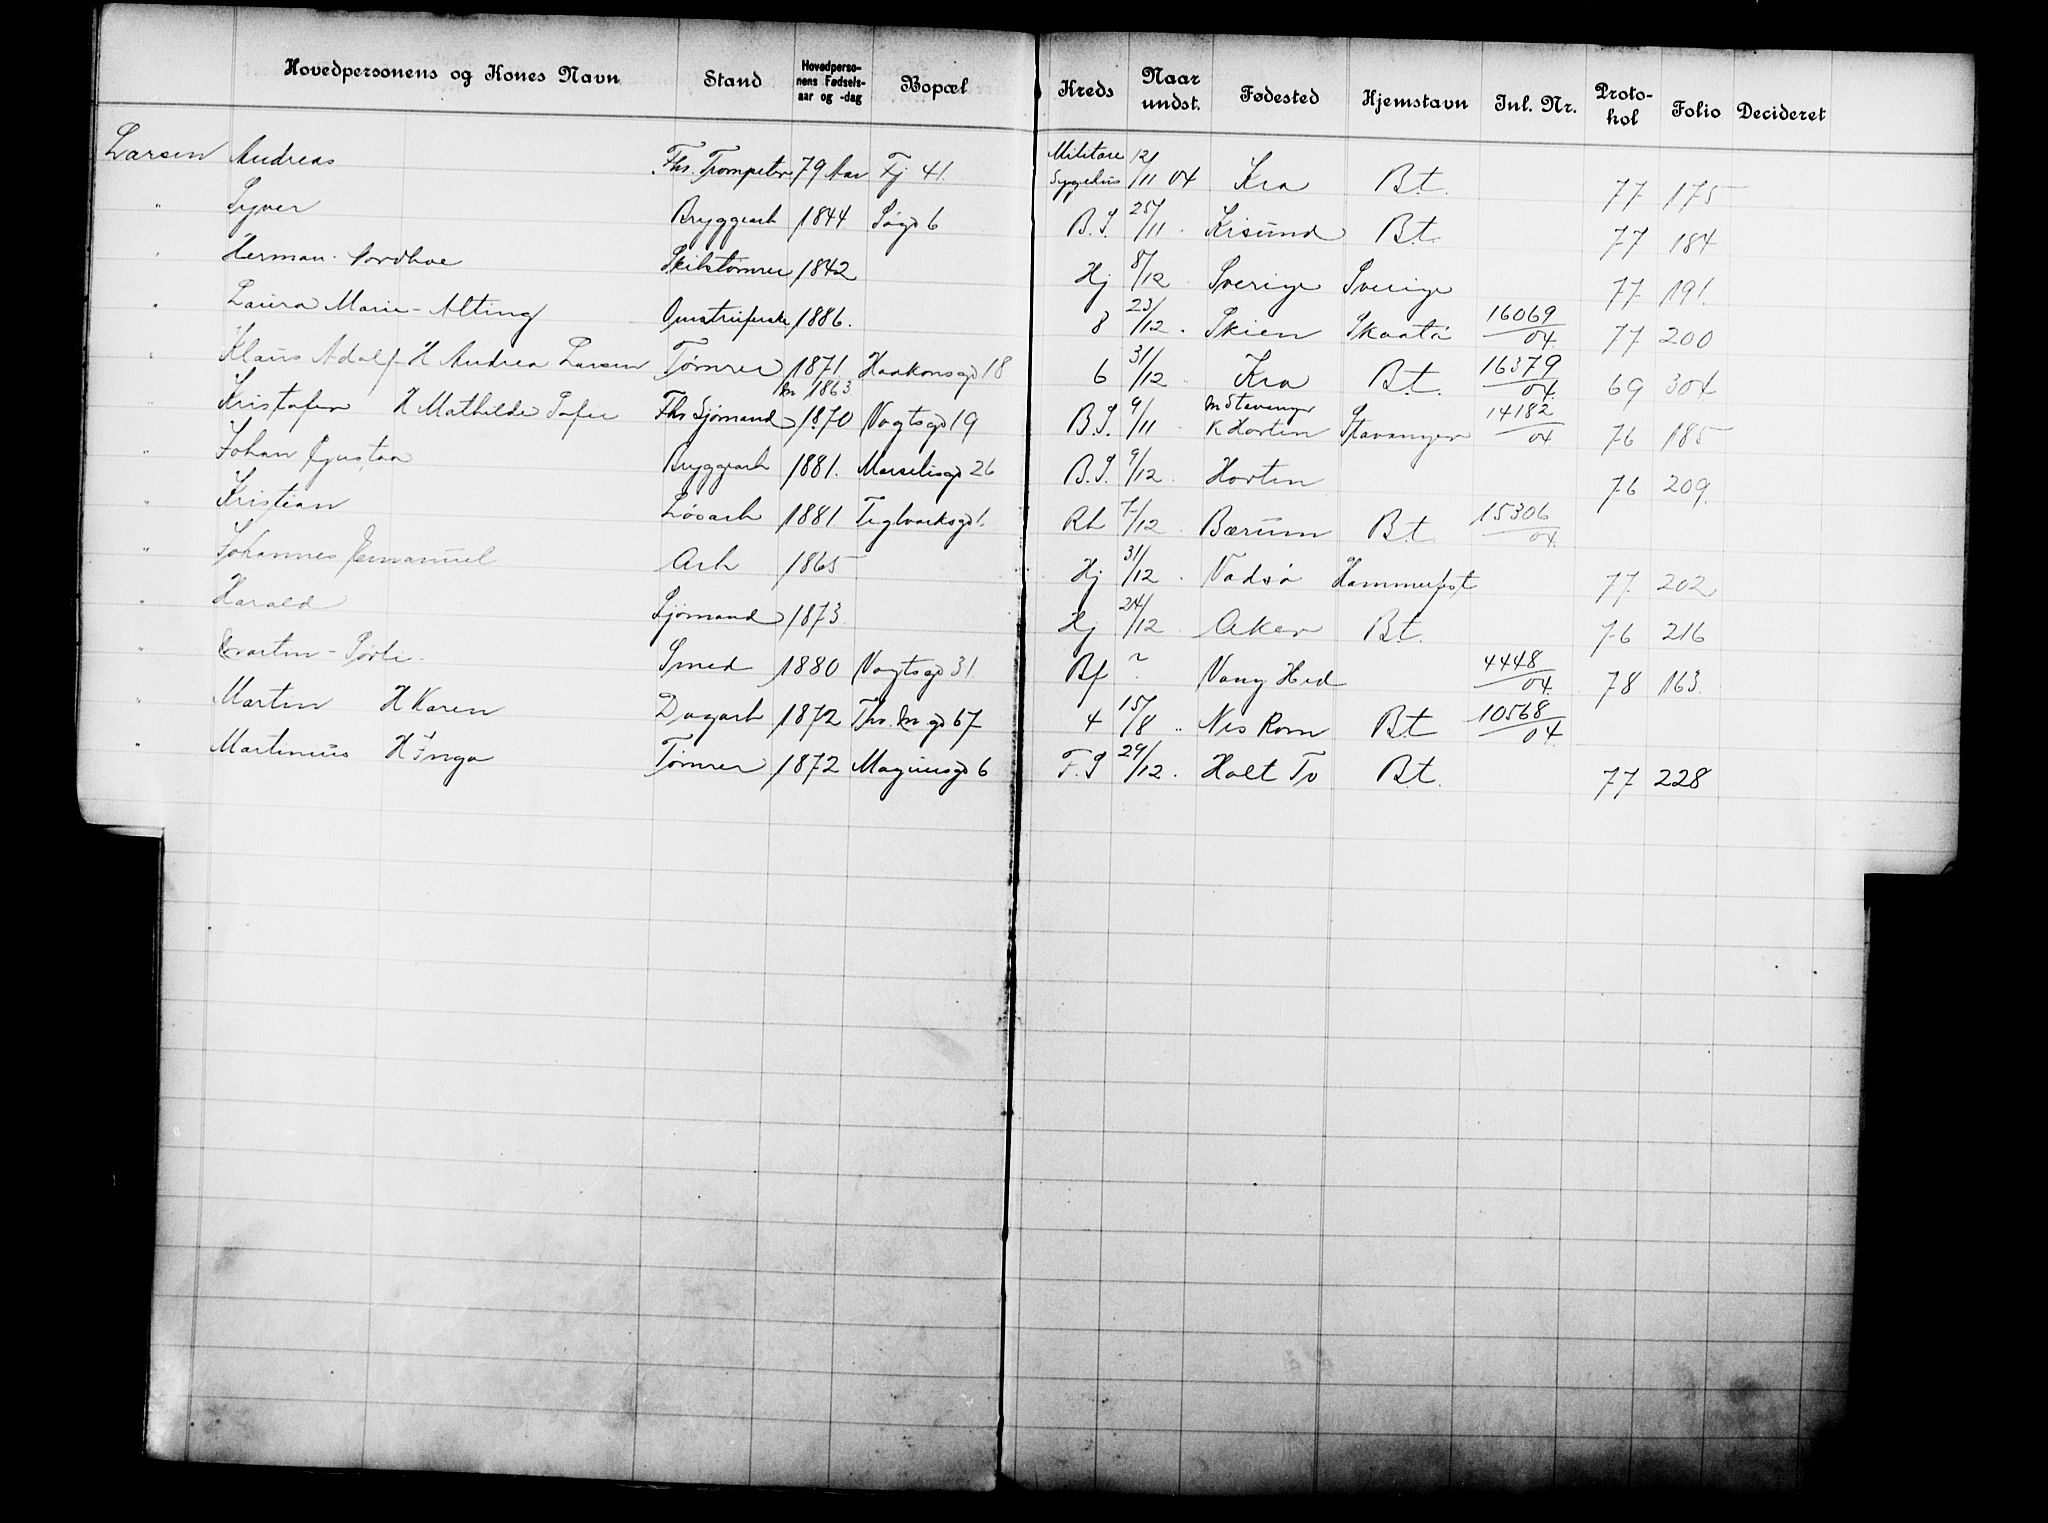 Hovedpersonens og Kones Navn Stand Hovedpersonens Fødselsaar og -dag Bopæl Kreds Naar undst. Fødested Hjemstavn Inl. Nr. Protokol Folio Decideret
Larsen Andreas Fhs. Trompeter 79 Aar Fj 41. Militære Sygehus 12/11 04 Kra B.t. 77 175
" Syver Bryggearb 1844 Søgd 6 B.S. 25/11 . Krsund B.t. 77 184
" Herman - Skibstømrer 1842 Hj 8/12 Sverige Sverige 77 191.
" Laura Marie - Alting 1886. 8 23/12 . Skien Skaatø 16069/04. 77 200
" Klaus Adolf - H Andrea Larsen Tømrer 1871. Haakonsgd 18 6 31/12 . Kra B.t. 16379/04. 69 304
" Kristofer H Mathilde Fhs Sjømand m 1863 1870 Vogtsgd 19 B.S. 9/11 m Stavanger K Horten Stavanger 14182/04 76 185
" Johan Gustav Bryggearb 1881. Marselisgd 26 B.S. 9/12 . Horten 76 209.
" Kristian Løsarb 1881 Teglverksgd 1. Rh 7/12 . Bærum B.t. 15306/04.
" Johannes Emanuel Arb 1865 Hj 31/12 . Vadsø Hammerfest 77 202
" Harald Sjømand 1873. Hj 24/12 . Aker B.t. 76 216
" Martin - Smed 1880 Vogtsgd 31 Bf ? Vang Hed 4448/04. 78 163.
" Martin H Karen Dagarb 1872 Ths. m gd 67 4 15/8 " Nes Rom B.t 10568/04.
" Martinius H Inga Tømrer 1872 Magnusgd 6 F.S 29/12 . Holt Tv B.t. 77 228